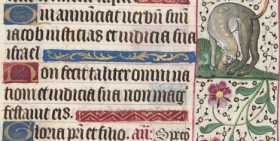 Qui annunciat verbum suū
iacob iusticias et iudicia sua
israel
Non fecit taliter omni na
tioni et iudicia sua non mag
festauit eis.
Gloria pri et filio. aṅ: Spēo